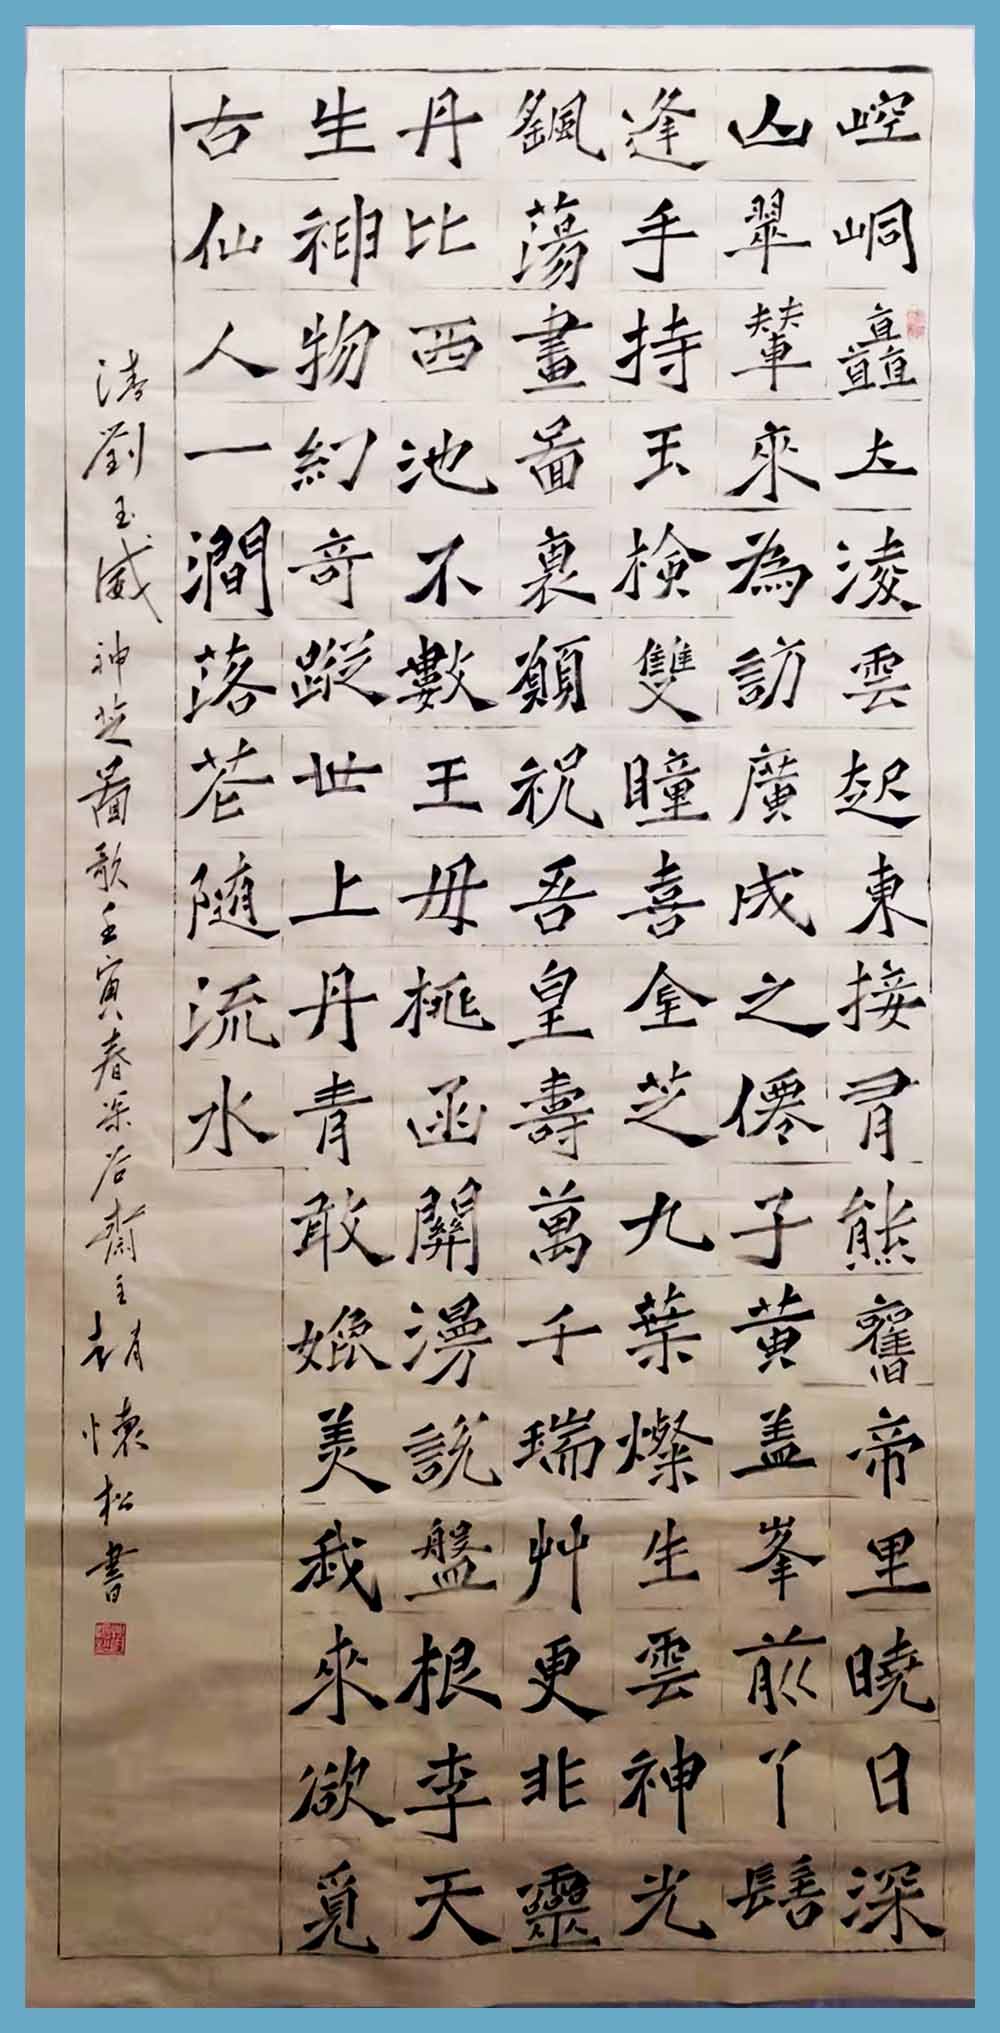 崆峒矗立淩雲起東接有熊舊帝里曉日深
山翠輦來為訪廣成之僊子黃盖峯前丫髻
逢手持玉檢雙瞳喜金芝九葉燦生雲神光
飖蕩畫啚裏願祝吾皇壽萬千瑞艸更非靈
丹比西池不數王母桃函關漫說盤根李天
生神物幻奇蹤世上丹青敢媲美我來欲覓
古仙人一澗落花隨流水
清劉玉威神芝啚歌壬寅春深谷齋主趙懷松書